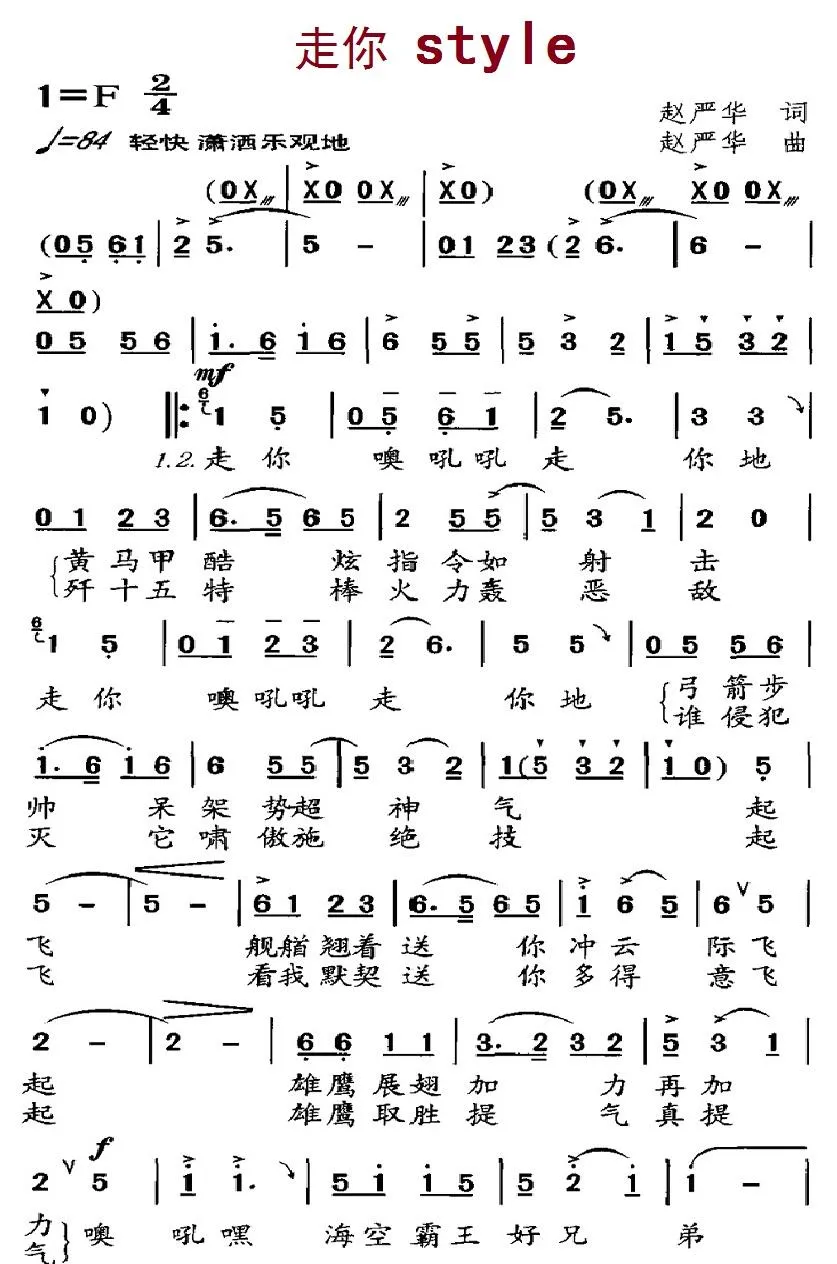 走你 style
1=F 2/4
赵严华 词
♩=84 轻快 潇洒乐观地
赵严华 曲
(0X | X0 0X | X0) (0X X0 0X
(05 61 | 2 5. | 5 - | 01 23 (2 6. | 6 - |
X0)
05 56 | 1. 6 16 | 6 55 | 5 3 2 | 15 32 |
mf
1 0) ‖: 6 1 5 | 05 61 | 2 5. | 3 3 |
1.2. 走你 噢吼吼 走 你地
01 23 | 6. 5 65 | 2 55 | 5 3 1 | 2 0 |
黄马甲酷 炫指令如 射 击
歼十五特 棒火力轰 恶 敌
6 1 5 | 01 23 | 2 6. | 5 5 | 05 56 |
走你 噢吼吼 走 你地 弓箭步
谁侵犯
1. 6 16 | 6 55 | 5 3 2 | 1(5 32 | 10) 5 |
帅 呆架势超 神 气 起
灭 它啸傲施 绝 技 起
5 - | 5 - | 61 23 | 6. 5 65 | 1 6 5 | 6 ∨ 5 |
飞 舰艏翘着送 你冲云 际飞
飞 看我默契送 你多得 意飞
2 - | 2 - | 66 11 | 3. 2 32 | 5 3 1 |
起 雄鹰展翅加 力再加
起 雄鹰取胜提 气真提
f
2 ∨ 5 | 1 1. | 51 15 | 5 2 1 | 1 - |
力 噢 吼嘿 海空霸王好兄 弟
气